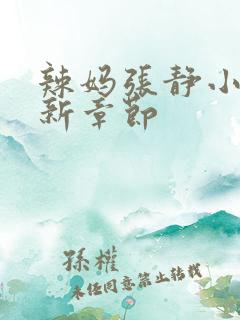 辣妈張静小
新章節
孫權
未经同意禁止转载